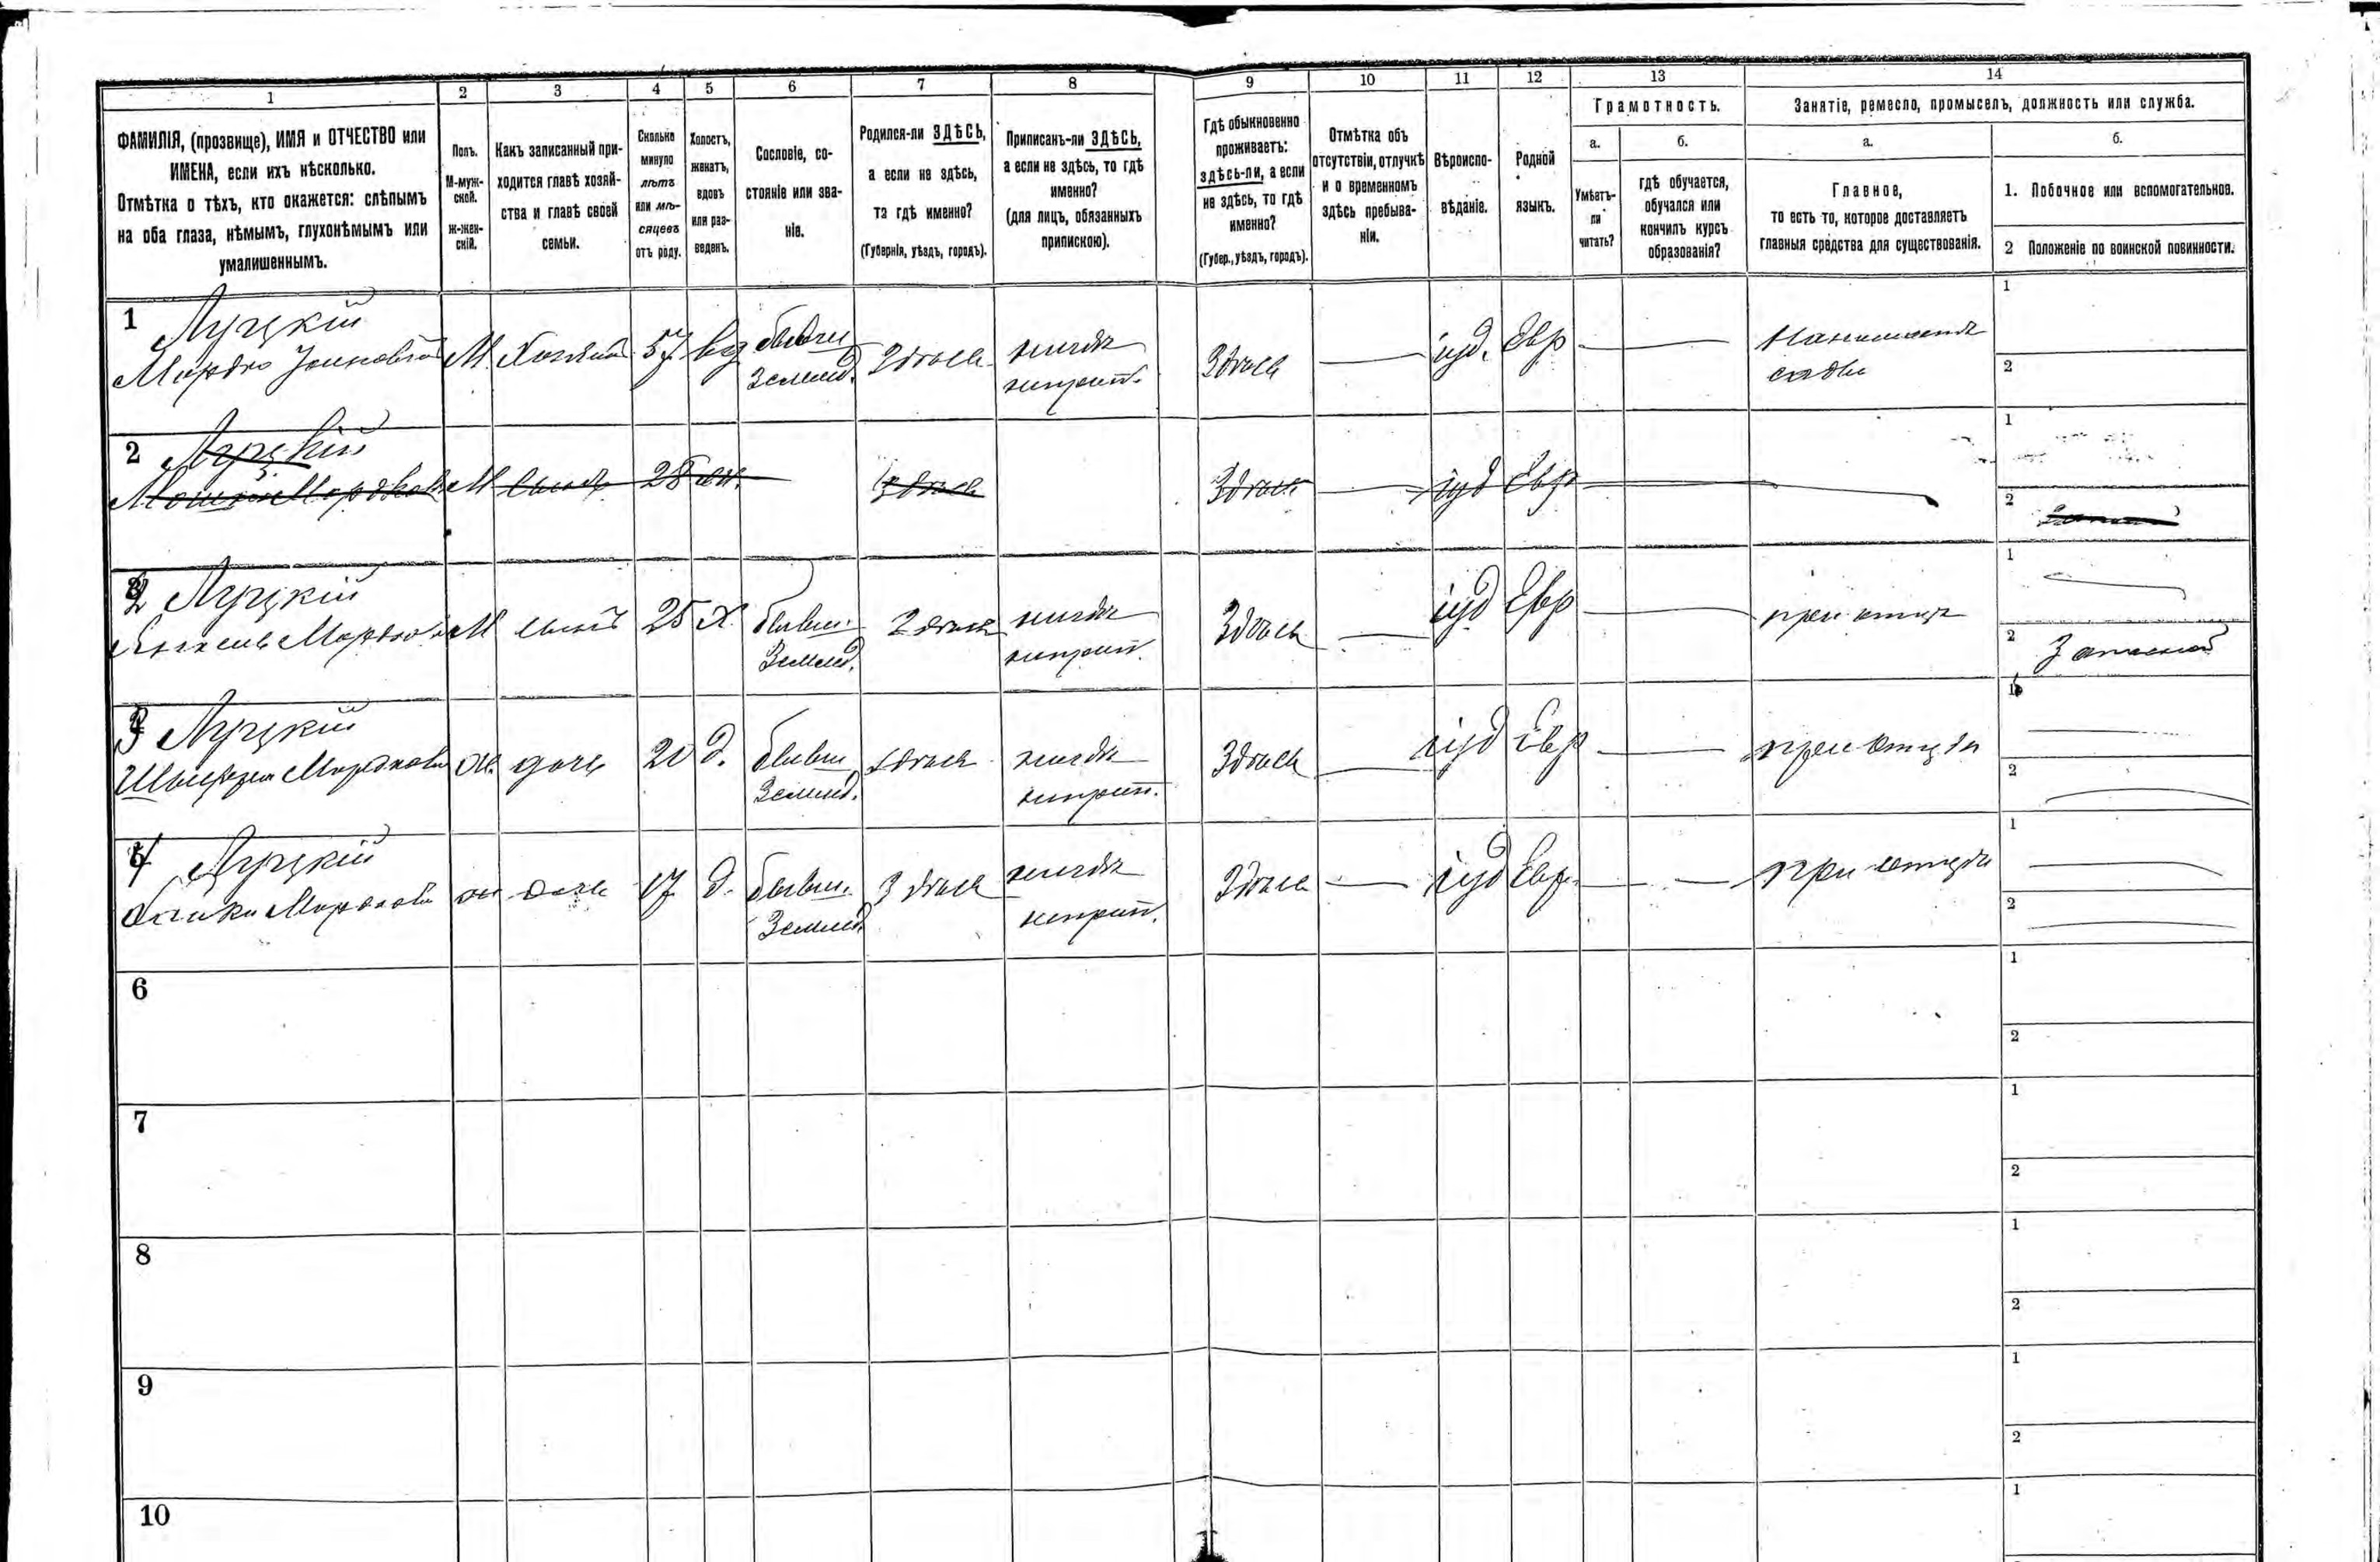 1
2
3
4
5
6
7
8
9
10
11
12
13
14
ФАМИЛІЯ, (прозвище), ИМЯ и ОТЧЕСТВО или
ИМЕНА, если ихъ нѣсколько.
Отмѣтка о тѣхъ, кто окажется: слѣпымъ
на оба глаза, нѣмымъ, глухонѣмымъ или
умалишеннымъ.
Полъ.
М-муж-
ской.
Ж-жен-
скій.
Какъ записанный при-
ходится главѣ хозяй-
ства и главѣ своей
семьи.
Сколько
минуло
лѣтъ
или мѣ-
сяцевъ
отъ роду.
Холостъ,
женатъ,
вдовъ
или раз-
веденъ.
Сословіе, со-
стояніе или зва-
ніе.
Родился-ли ЗДѢСЬ,
а если не здѣсь,
та гдѣ именно?
(Губернія, уѣздъ, городъ).
Приписанъ-ли ЗДѢСЬ,
а если не здѣсь, то гдѣ
именно?
(для лицъ, обязанныхъ
припискою).
Гдѣ обыкновенно
проживаетъ:
здѣсь-ли, а если
не здѣсь, то гдѣ
именно?
(Губер., уѣздъ, городъ).
Отмѣтка объ
отсутствіи, отлучкѣ
и о временномъ
здѣсь пребыва-
ніи.
Вѣроиспо-
вѣданіе.
Родной
языкъ.
Грамотность.
а.
Умѣетъ-
ли
читать?
б.
гдѣ обучается,
обучался или
кончилъ курсъ
образованія?
Занятіе, ремесло, промыселъ, должность или служба.
а.
Главное,
то есть то, которое доставляетъ
главныя средства для существованія.
б.
1. Побочное или вспомогательное.
2 Положеніе по воинской повинности.
1 Луцкій
Мордко М. Хозяинъ 57 вд бывш. Здѣсь нигдѣ Здѣсь іуд. Евр
Землед. неприп. сады
1
2
2 Луцкій
Мошко Мордков М сынъ 28 Здѣсь Здѣсь іуд Евр
1
2
2 Луцкій
Мордков М сынъ 25 Х. бывш. Здѣсь нигдѣ Здѣсь іуд Евр при отцѣ
Землед. неприп.
1
2 Запасной
3 Луцкій
Мордкова ж. дочь 20 д. бывш. Здѣсь нигдѣ Здѣсь іуд Евр при отцѣ
Землед. неприп.
1
2
4 Луцкій
Мордкова ж дочь 17 д. бывш. Здѣсь нигдѣ Здѣсь іуд Евр. при отцѣ
Землед. неприп.
1
2
6
1
2
7
1
2
8
1
2
9
1
2
10
1